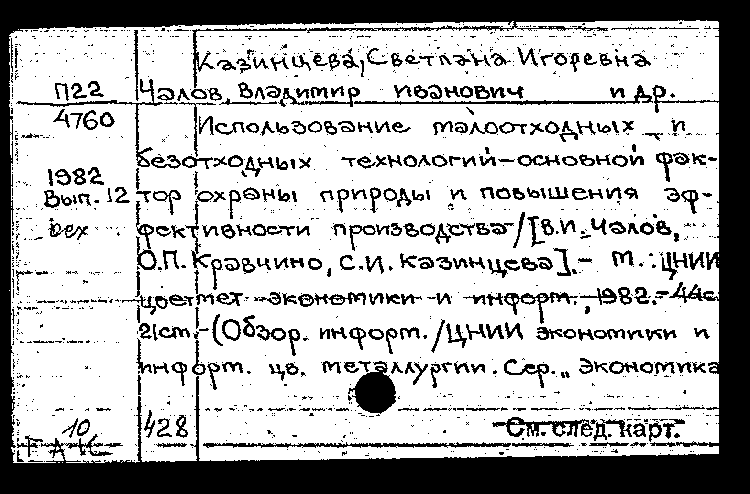 Казинцева, Светлана Игоревна
П22 Чалов, Владимир Иванович и др.
4760 Использование малоотходных и
безотходных технологий-основной фак-
1982
Вып. 12 тор охраны природы и повышения эф-
фективности производства/[В.И. Чалов,
О.П. Кравчино, С.И. Казинцева].- М.: ЦНИИ
цветмет экономики и информ., 1982.-44с
21см.-(Обзор. информ./ЦНИИ экономики и
информ. цв. металлургии. Сер. „Экономика
10 428 См. след. карт.